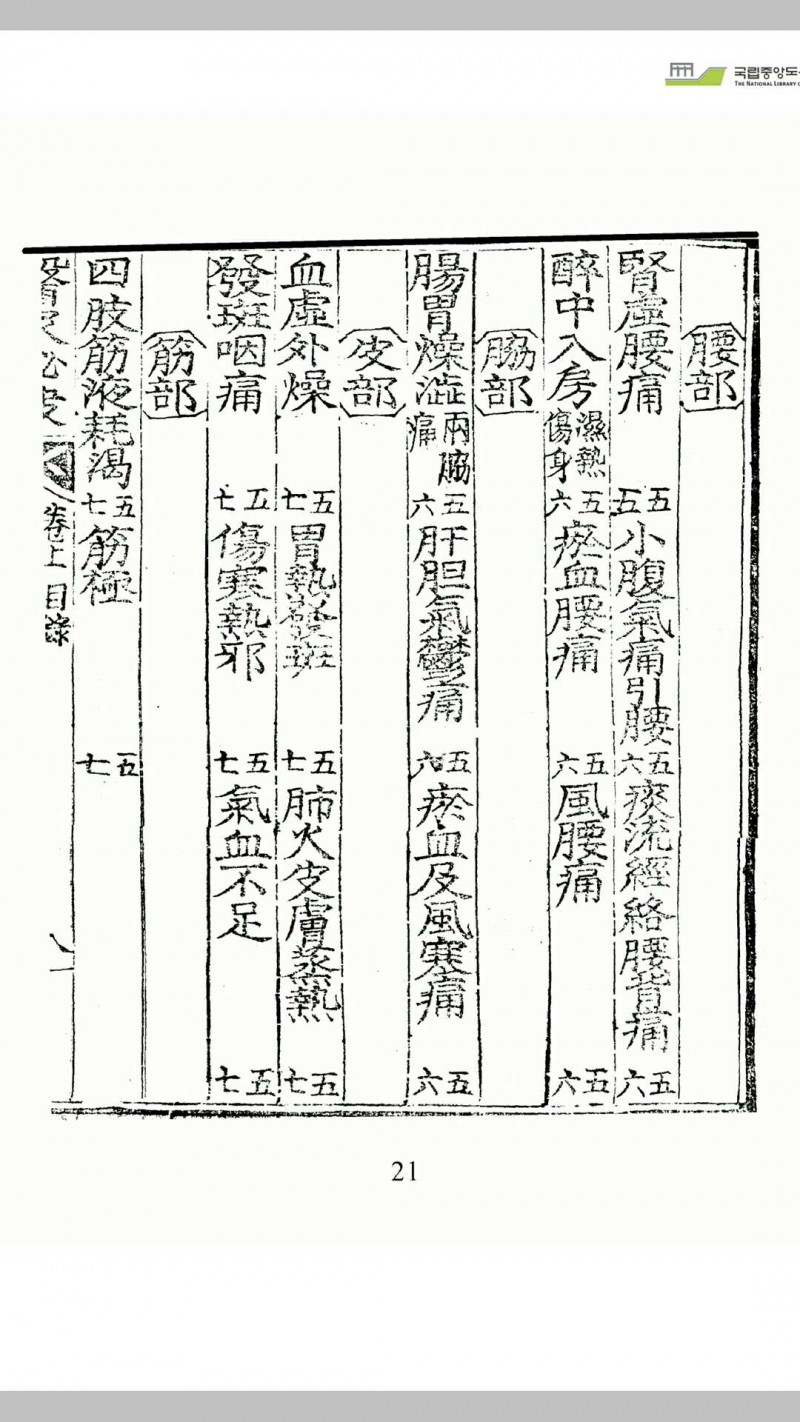 국립중앙도
THE NATIONAL LIBRARY O
腰部
腎虛腰痛 五五 小腹氣痛引腰 五六 痰流經絡腰背痛 五六
醉中入房 濕熱傷身 五六 瘀血腰痛 五六 風腰痛 五六
脇部
腸胃燥澁 兩脇痛 五六 肝胆氣鬱痛 五六 瘀血及風寒痛 五六
皮部
血虛外燥 五七 胃熱發斑 五七 肺火皮膚蒸熱 五七
發斑咽痛 五七 傷寒熱邪 五七 氣血不足 五七
筋部
四肢筋液耗渴 五七 筋極 五七
卷上 目錄
21